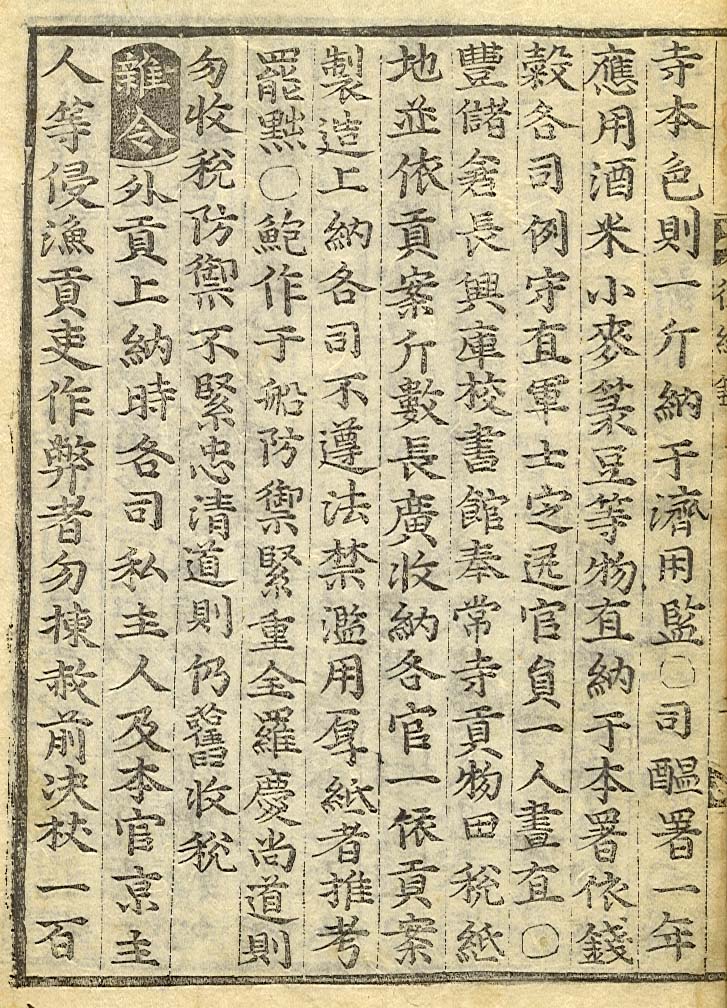 寺本色則一斤納于濟用監○司醞署一年
應用酒米小麥菉豆等物直納于本署依錢
糓各司例守直軍士定送官員一人晝直○
豐儲倉長興庫校書館奉常寺貢物田稅紙
地並依貢案斤數長廣收納各官一依貢案
製造上納各司不遵法禁濫用厚紙者推考
罷黜○鮑作于船防禦緊重全羅慶尚道則
勿收稅防禦不緊忠清道則仍舊收稅
雜令外貢上納時各司私主人及本官京主
人等侵漁貢吏作弊者勿揀赦前决杖一百